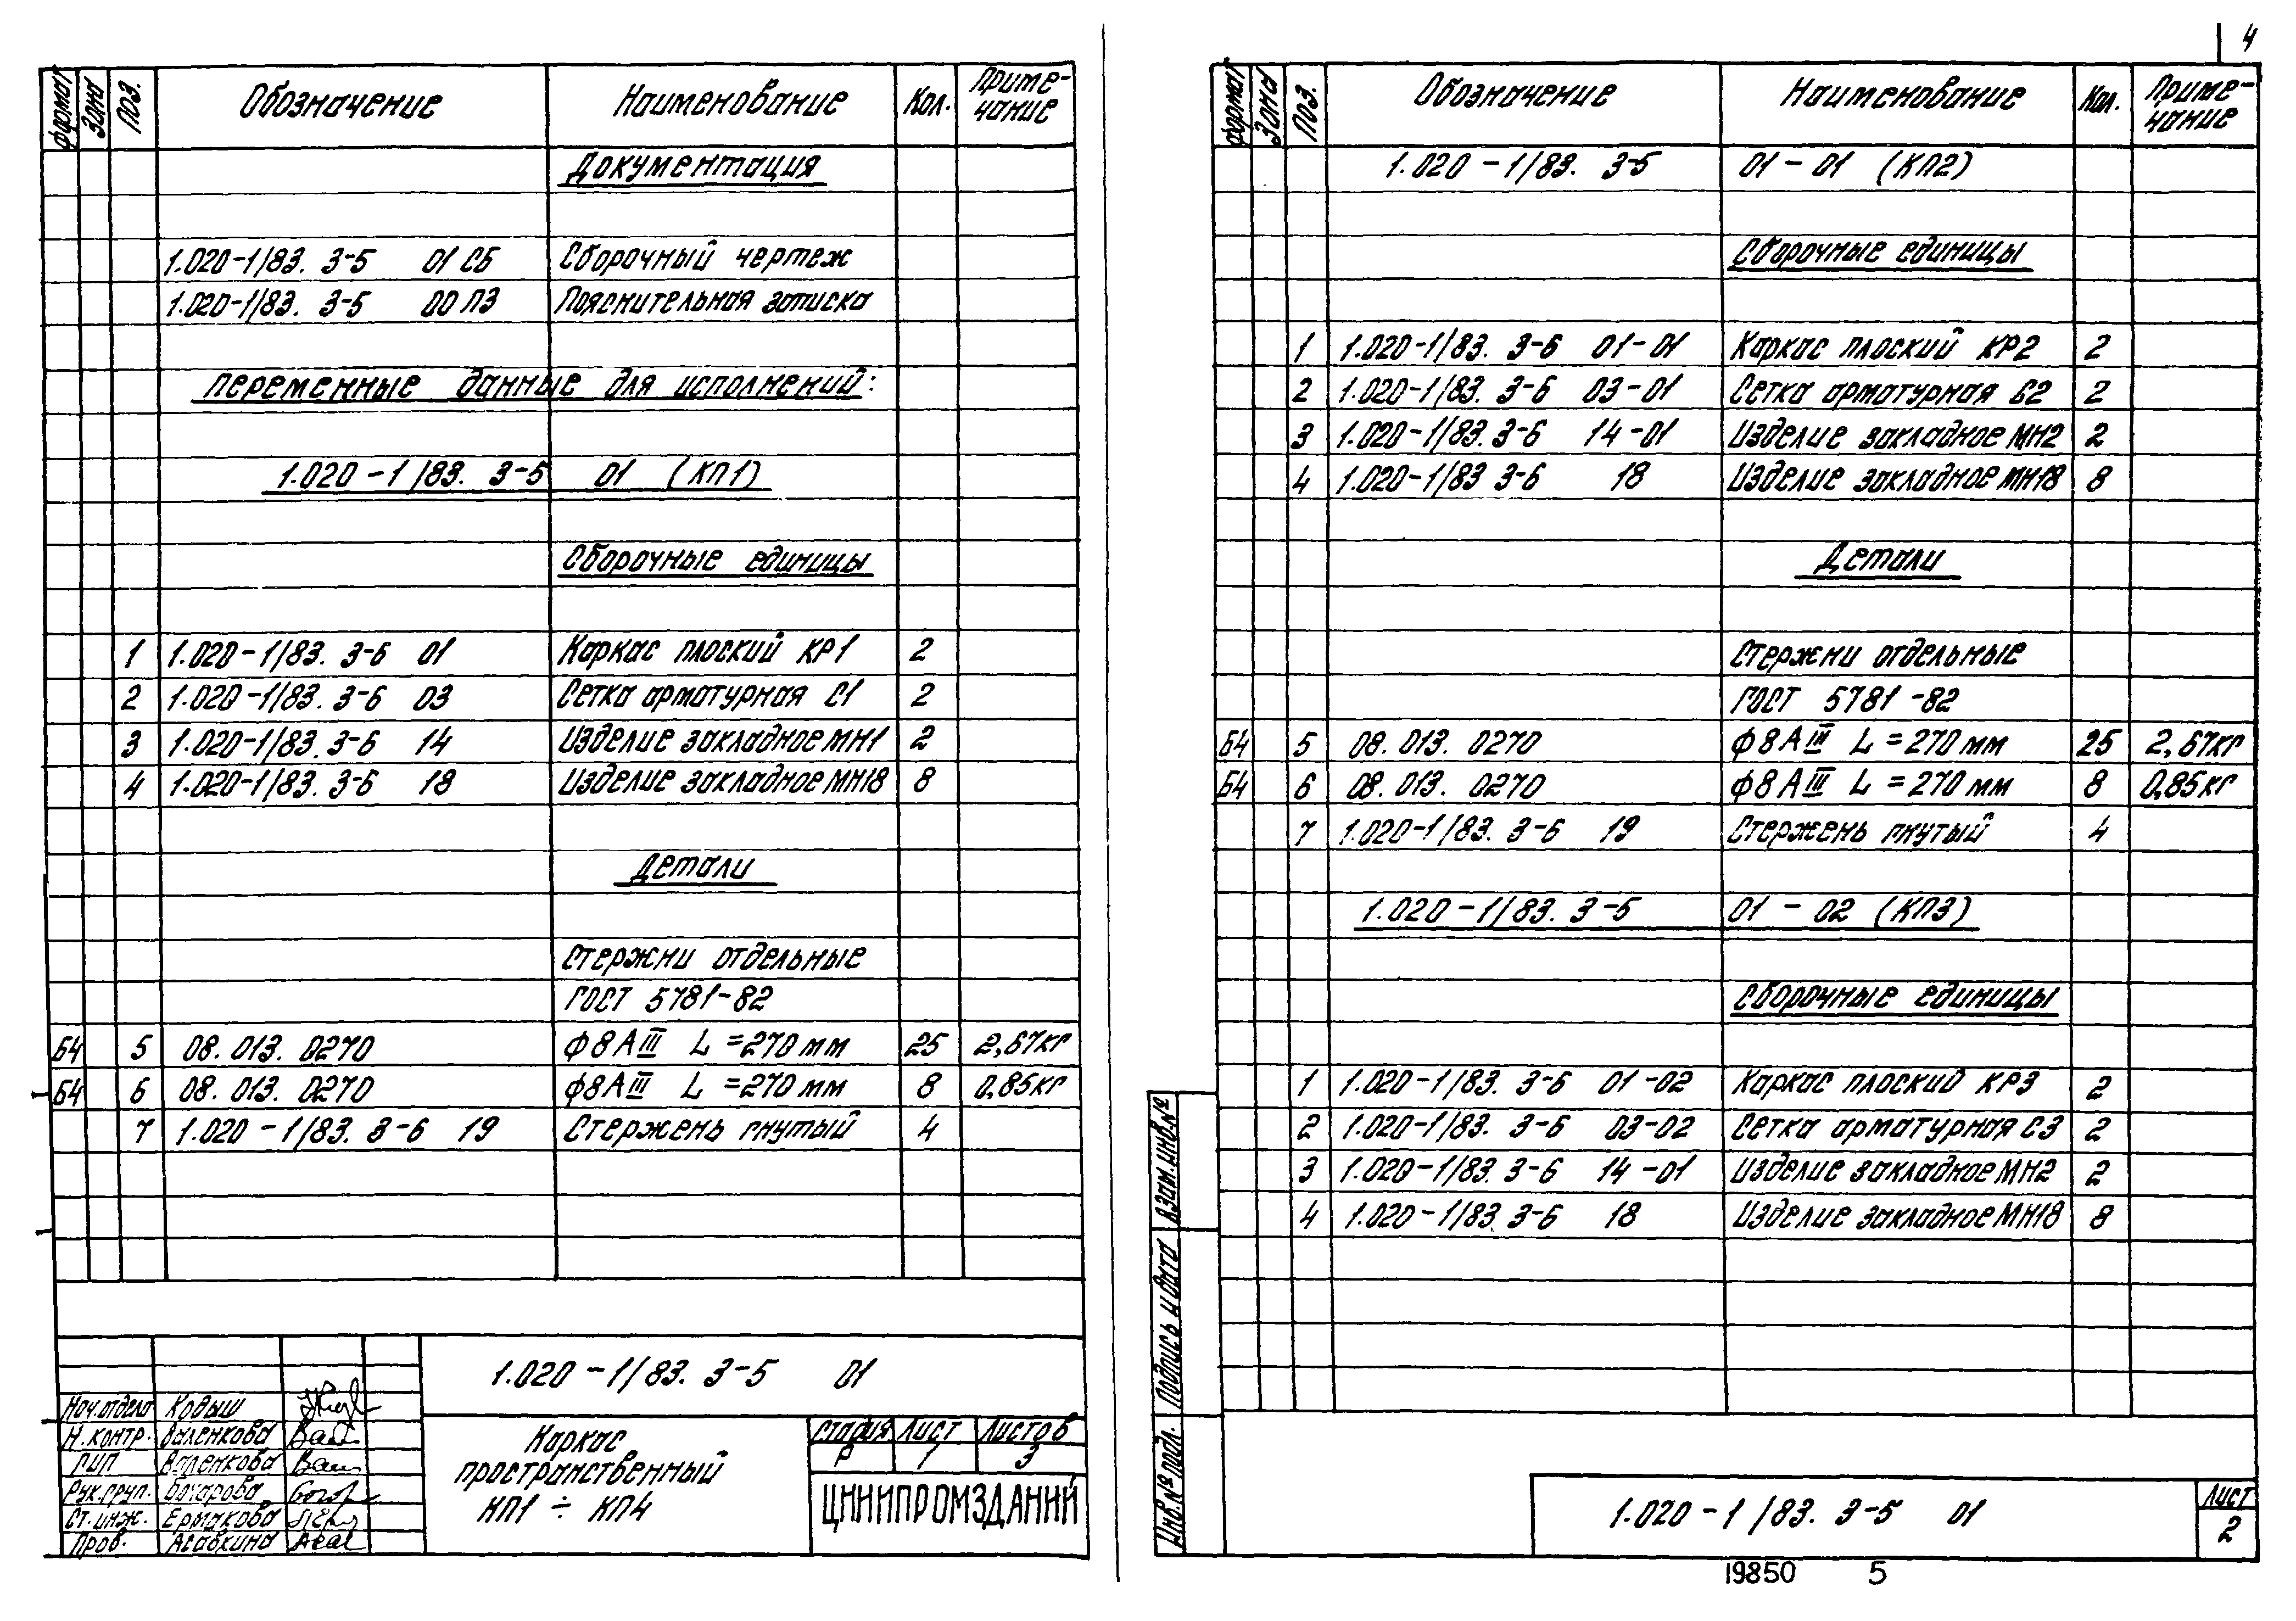 формат Зона Поз. Обозначение Наименование Кол. Приме-
чание
Документация
1.020-1/83. 3-5 01 СБ Сборочный чертеж
1.020-1/83. 3-5 00 ПЗ Пояснительная записка
Переменные данные для исполнений:
1.020-1/83. 3-5 01 (КП1)
Сборочные единицы
1 1.020-1/83. 3-6 01 Каркас плоский КР1 2
2 1.020-1/83. 3-6 03 Сетка арматурная С1 2
3 1.020-1/83. 3-6 14 Изделие закладное МН1 2
4 1.020-1/83. 3-6 18 Изделие закладное МН18 8
Детали
Стержни отдельные
ГОСТ 5781-82
Б4 5 08. 013. 0270 ф8АIII L =270 мм 25 2,67кг
Б4 6 08. 013. 0270 ф8АIII L =270 мм 8 0,85кг
7 1.020-1/83. 3-6 19 Стержень гнутый 4
1.020-1/83. 3-5 01
Нач.отдела Кодыш
Н.контр. Валенкова
ГИП Валенкова
Рук.груп. Бочарова
Ст.инж. Ермакова
Пров. Агавкина
Каркас
пространственный
КП1 ÷ КП4
Стадия Лист Листов
Р 1 3
ЦНИИПРОМЗДАНИЙ
4
формат Зона Поз. Обозначение Наименование Кол. Приме-
чание
1.020-1/83. 3-5 01-01 (КП2)
Сборочные единицы
1 1.020-1/83. 3-6 01-01 Каркас плоский КР2 2
2 1.020-1/83. 3-6 03-01 Сетка арматурная С2 2
3 1.020-1/83. 3-6 14-01 Изделие закладное МН2 2
4 1.020-1/83 3-6 18 Изделие закладное МН18 8
Детали
Стержни отдельные
ГОСТ 5781-82
Б4 5 08. 013. 0270 ф8АIII L =270 мм 25 2,67кг
Б4 6 08. 013. 0270 ф8АIII L =270 мм 8 0,85кг
7 1.020-1/83. 3-6 19 Стержень гнутый 4
1.020-1/83. 3-5 01-02 (КП3)
Сборочные единицы
1 1.020-1/83. 3-6 01-02 Каркас плоский КР3 2
2 1.020-1/83. 3-6 03-02 Сетка арматурная С3 2
3 1.020-1/83. 3-6 14-01 Изделие закладное МН2 2
4 1.020-1/83 3-6 18 Изделие закладное МН18 8
Взам.инв.№
Подпись и дата
Инв.№ подл.
1.020-1/83. 3-5 01
Лист
2
19850 5